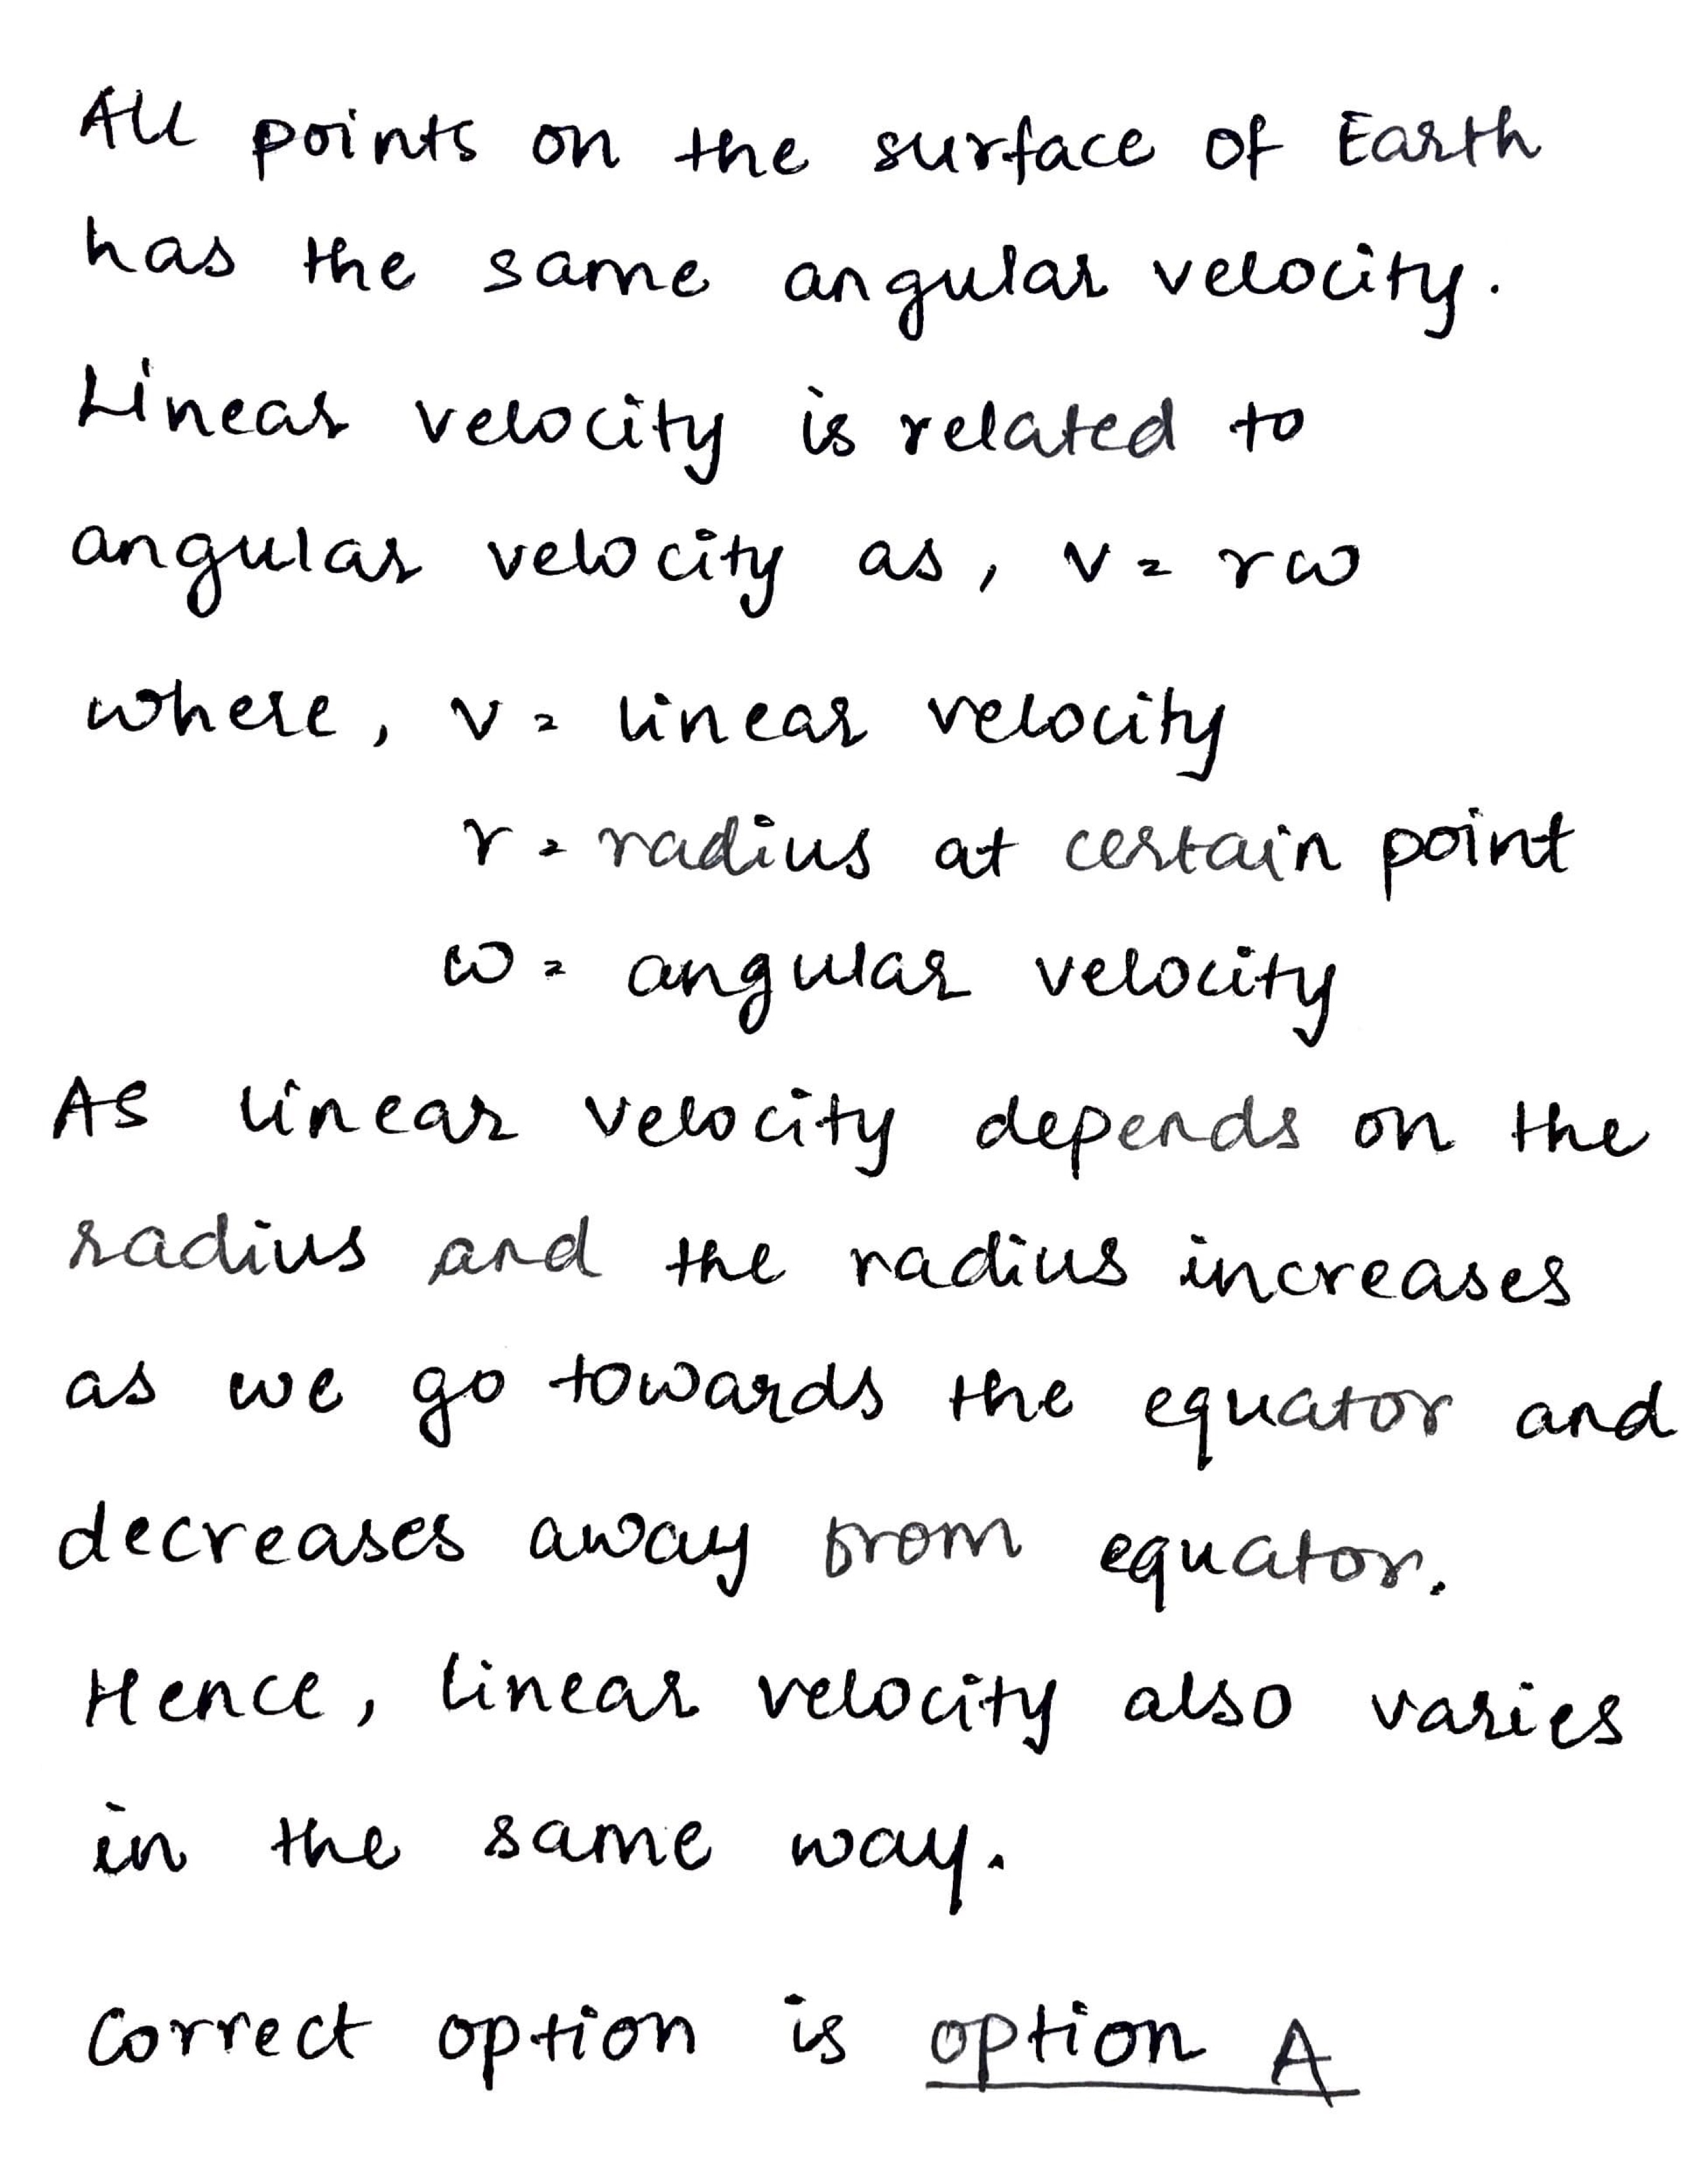 All points on the surface of Earth
has the same angular velocity.
Linear velocity is related to
angular velocity as, v = rω
where, v = linear velocity
r = radius at certain point
ω = angular velocity
As linear velocity depends on the
radius and the radius increases
as we go towards the equator and
decreases away from equator.
Hence, linear velocity also varies
in the same way.
Correct option is option A